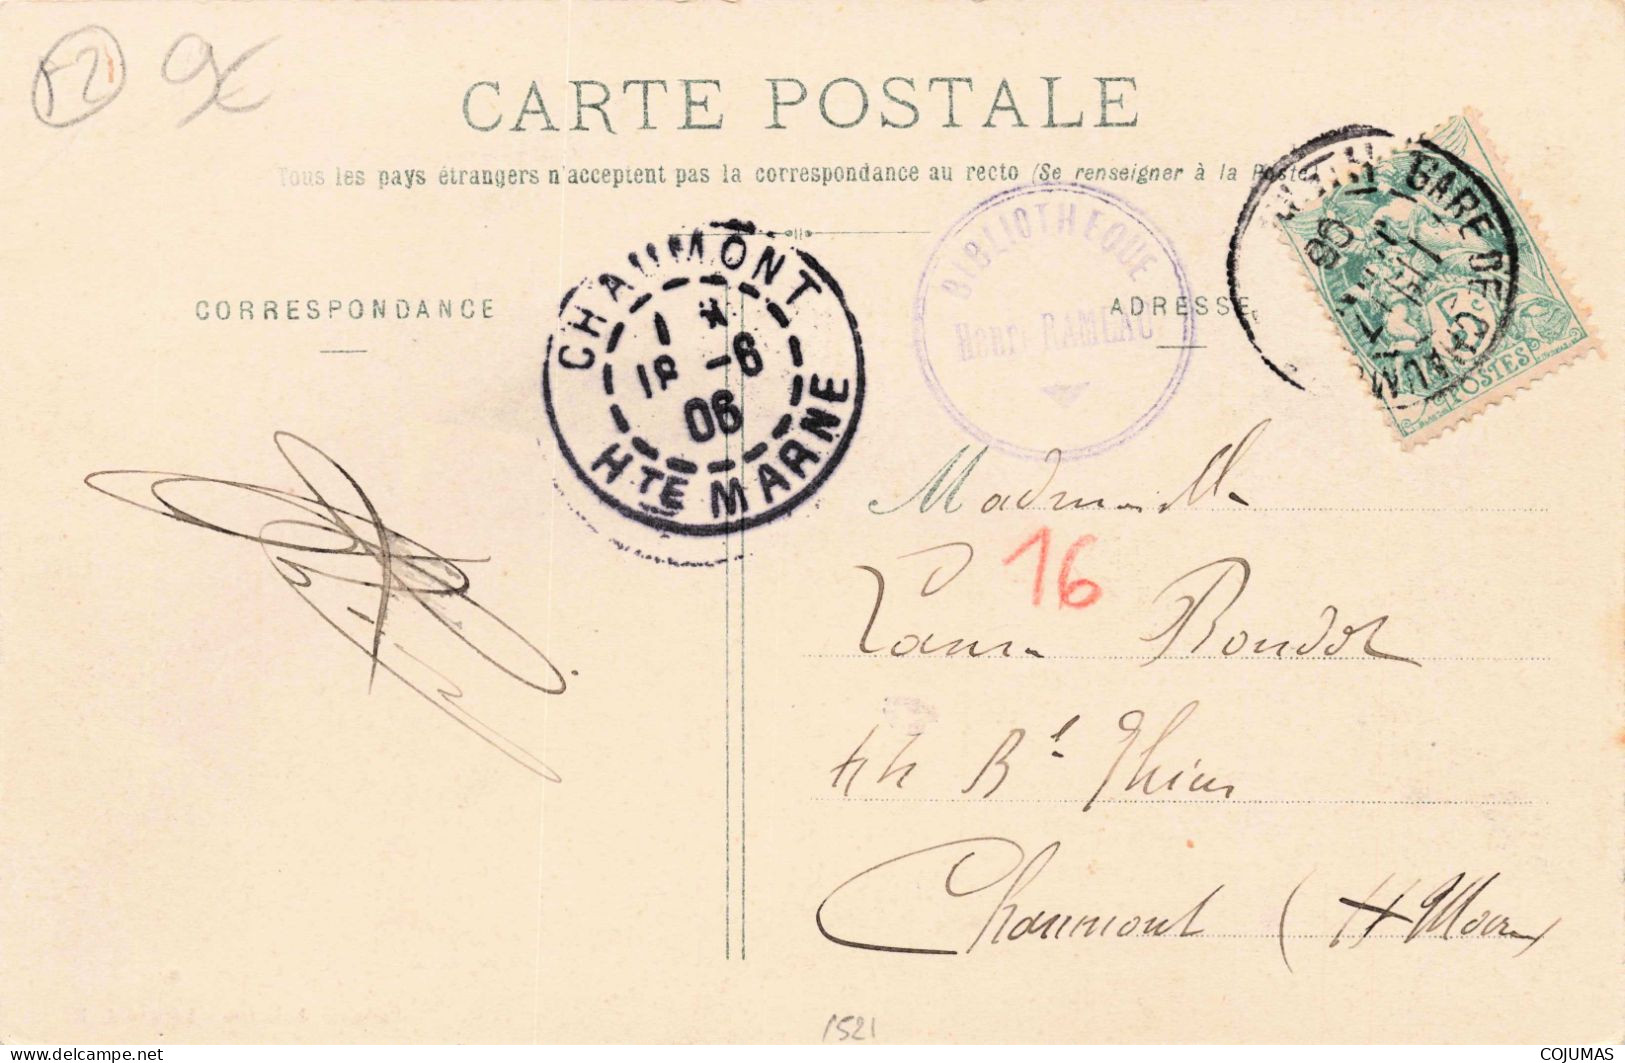 F2 9€
CARTE POSTALE
Tous les pays étrangers n'acceptent pas la correspondance au recto (Se renseigner à la Poste)
CORRESPONDANCE
ADRESSE
CHAUMONT
18 -6
06
HTE MARNE
BIBLIOTHEQUE
Henri RAMEAU
GARE DE CHAUM
06
5c
POSTES
Mademoiselle
16
Laure Roudot
44 Bd Thiers
Chaumont (Hte Marne)
1521
COJUMAS